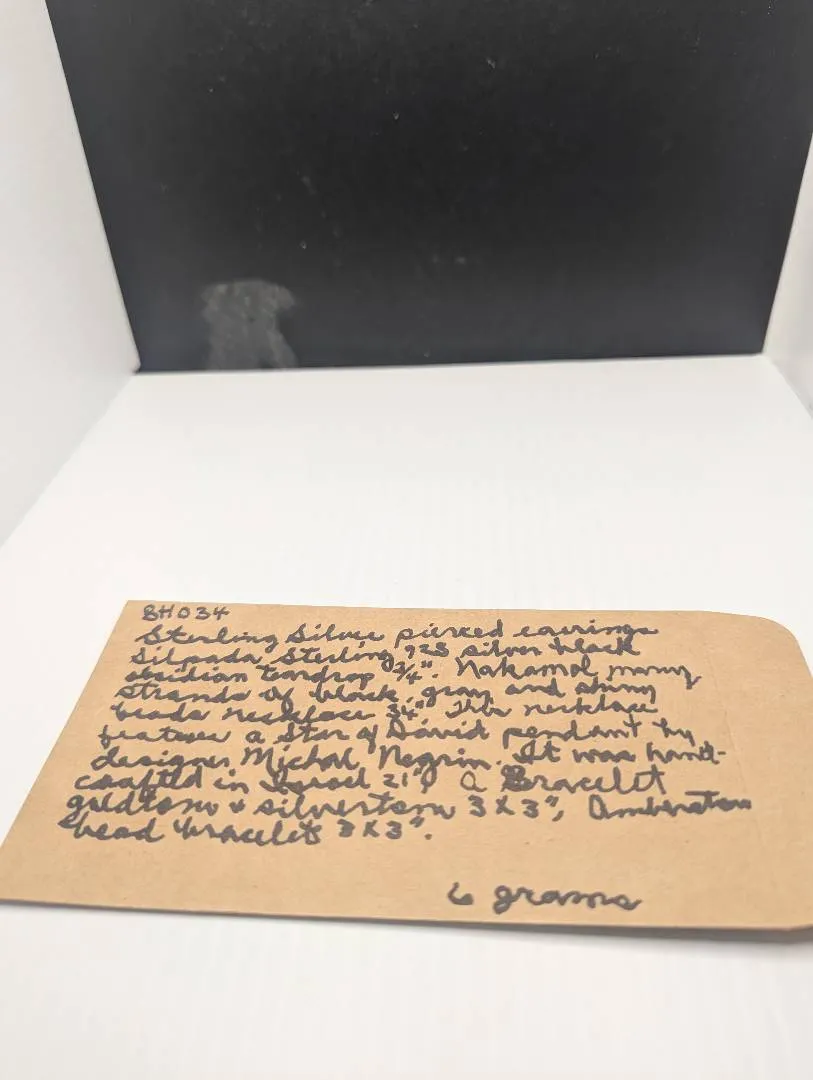 BH034
Sterling Silver pierced earrings
Silpada Sterling 925 silver black
obsidian teardrop 3/4". Nakamol many
strands of black, gray and shiny
beads necklace 34" This necklace
features a Star of David pendant by
designer Michal Negrin. It was hand-
crafted in Israel 21", a Bracelet
goldtone & silvertone 3 x 3",
bead bracelets 3 x 3".
6 grams